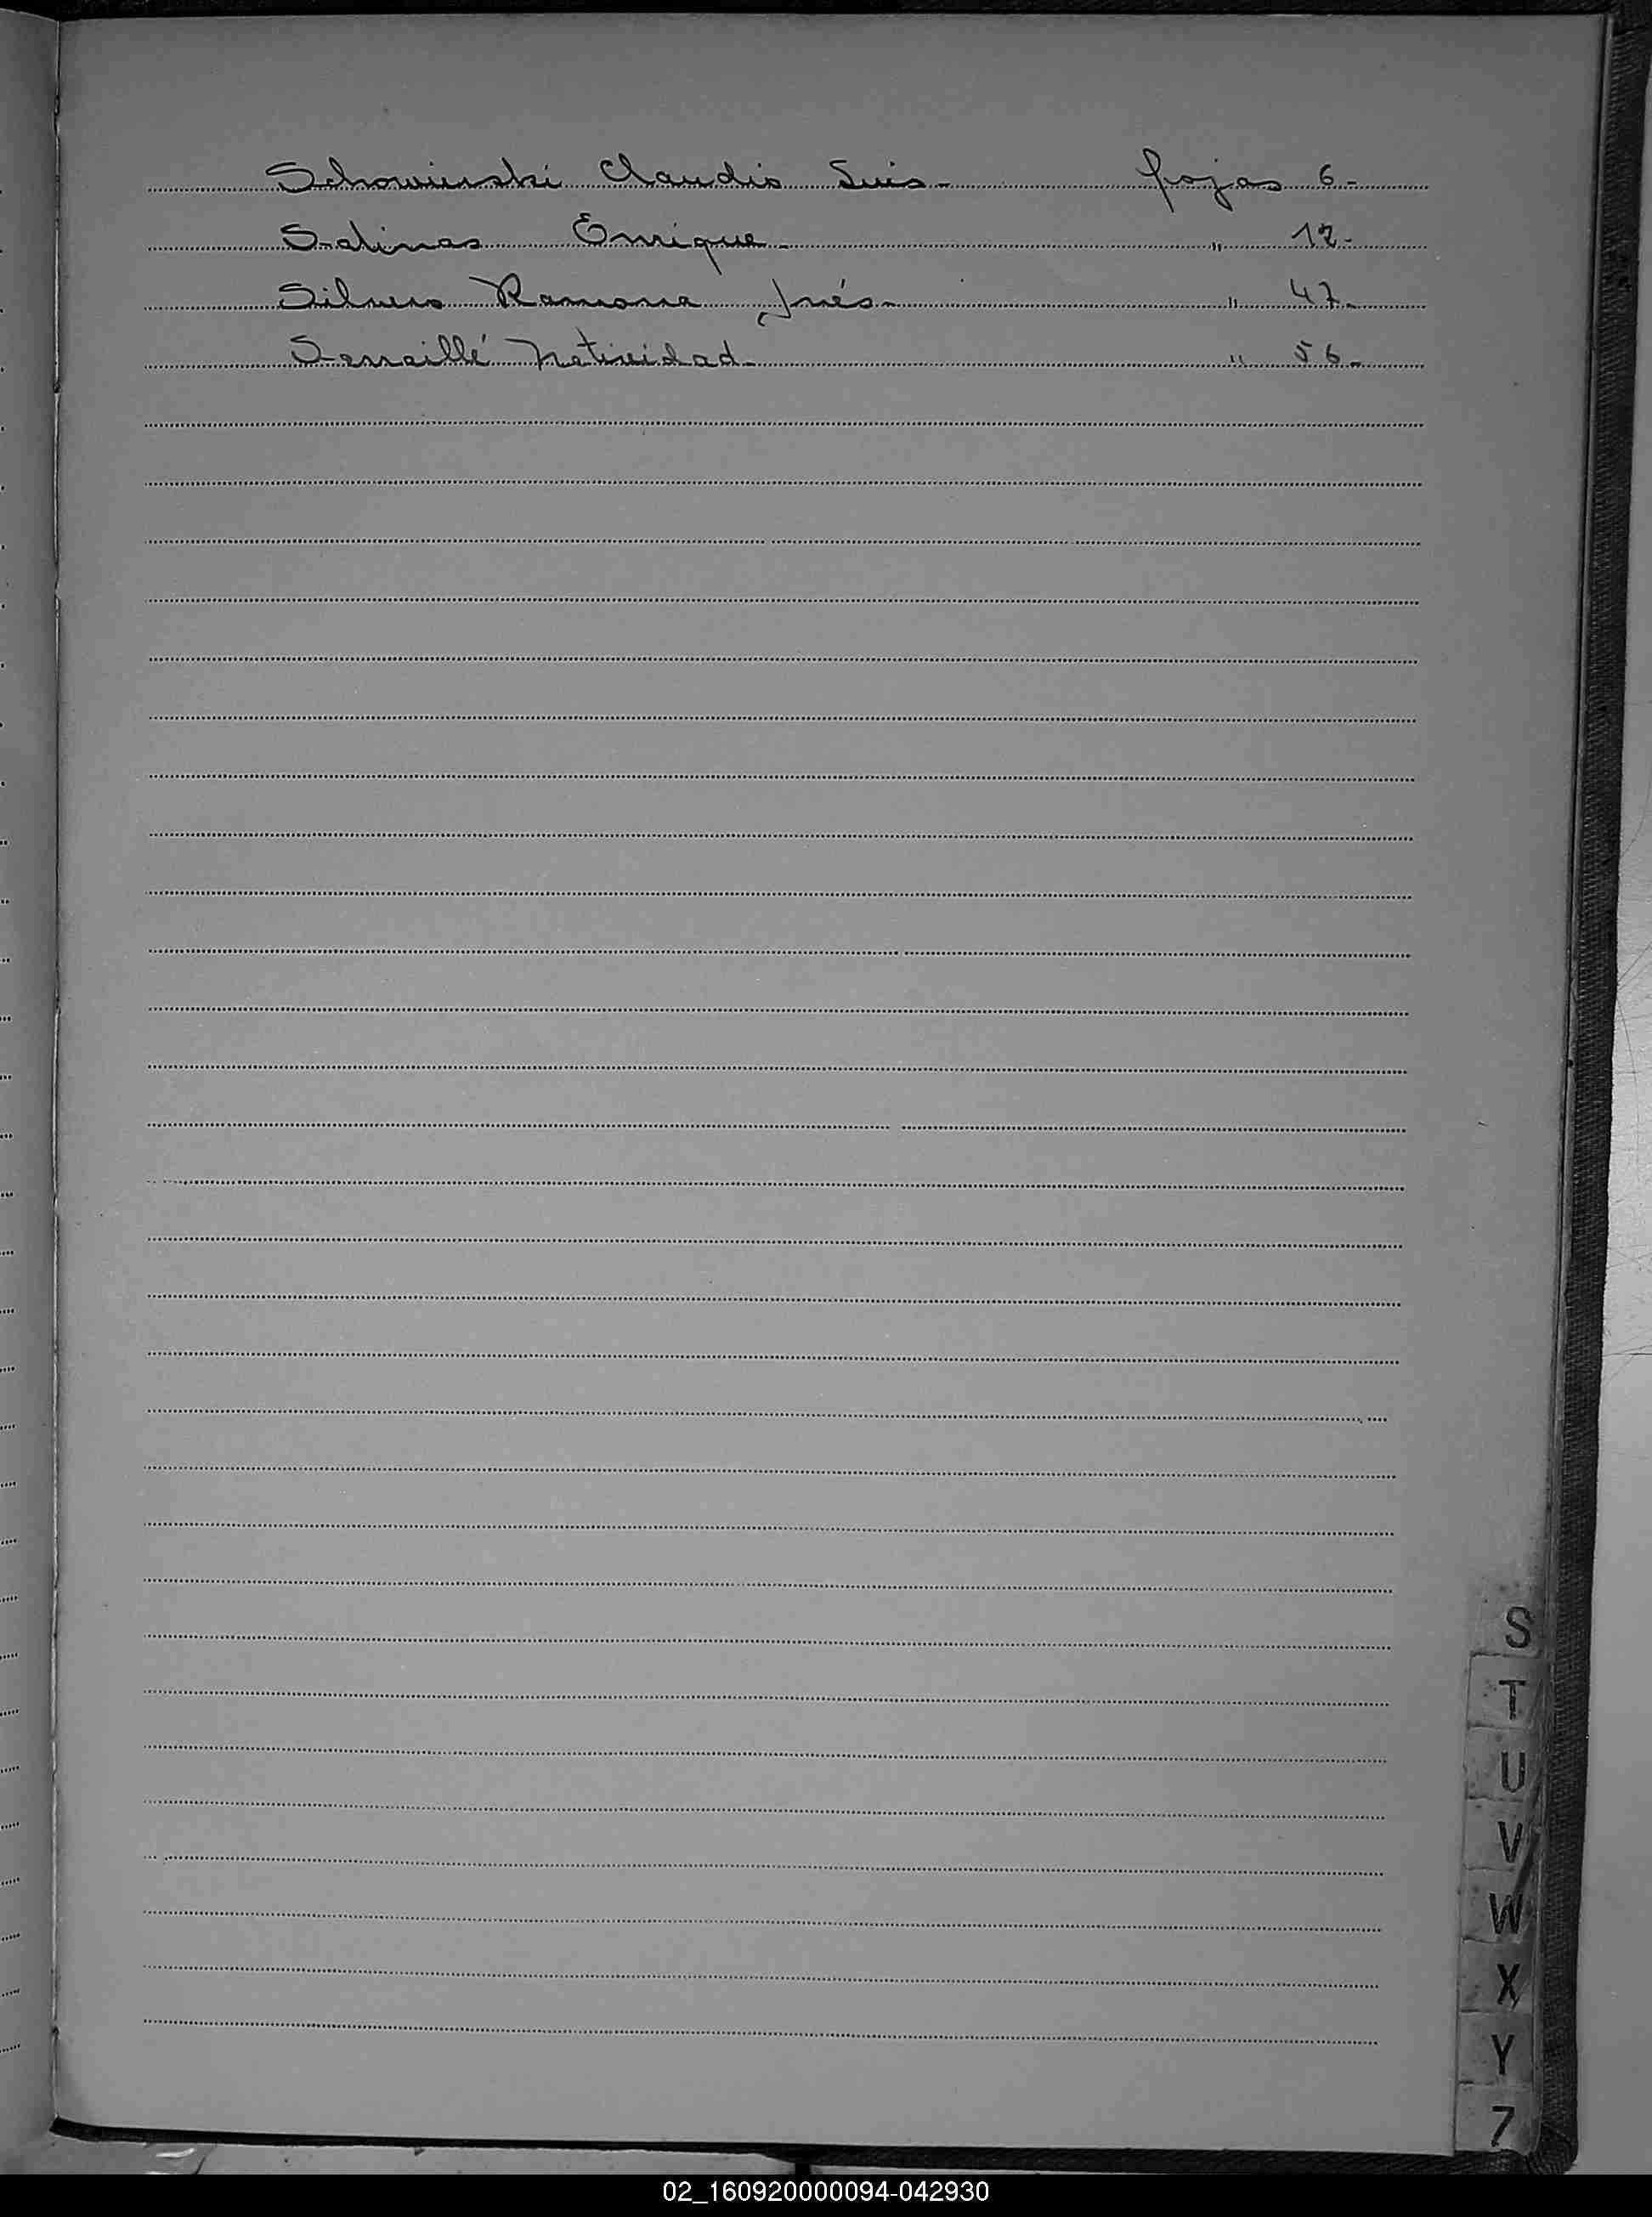 Schowinski Claudio Luis- fojas 6-
Salinas Enrique- " 12-
Silvero Ramona Inés- " 47-
Serraillé Natividad- " 56-
S
T
U
V
W
X
Y
Z
02_160920000094-042930